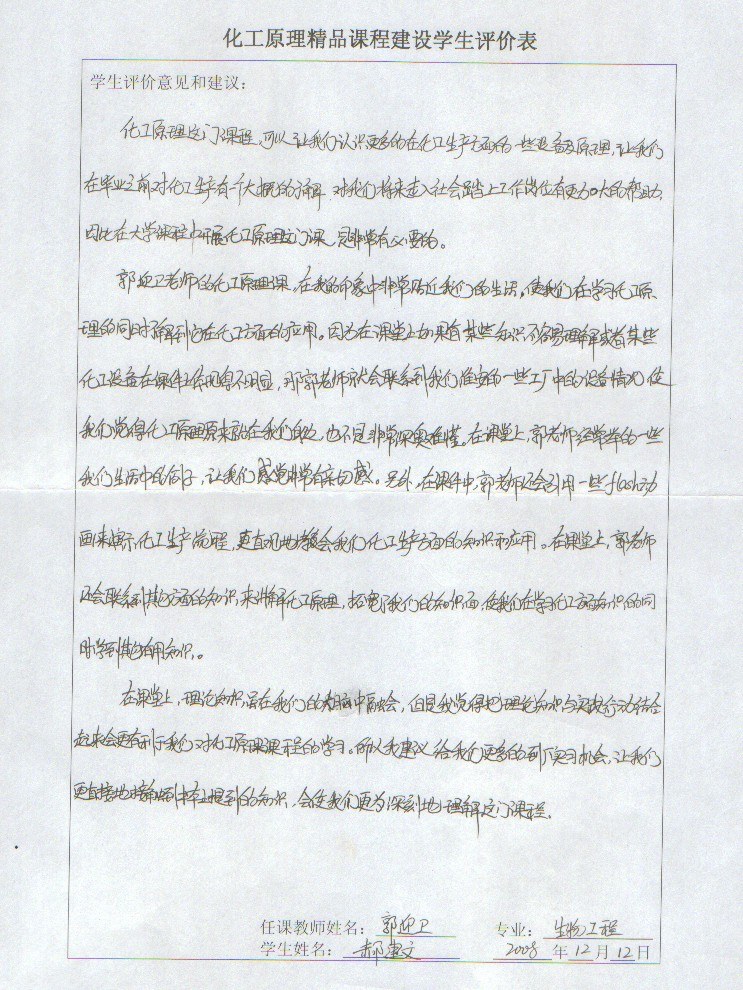 化工原理精品课程建设学生评价表
学生评价意见和建议：
化工原理这门课程，可以让我们认识更多的在化工生产方面的一些设备及原理，让我们
在毕业之前对化工生产有一个大概的了解，对我们将来走入社会踏上工作岗位有更加大的帮助，
因此在大学课程中开展化工原理这门课，是非常有必要的。
郭迎卫老师的化工原理课，在我的印象中非常贴近我们的生活，使我们在学习化工原
理的同时了解到它在化工方面的应用。因为在课堂上如果有某些知识不容易理解或者某些
化工设备在课件上体现得不明显，那郭老师就会联系到我们淮安的一些工厂中的设备情况，使
我们觉得化工原理原来就在我们身边，也不是非常深奥难懂。在课堂上，郭老师经常举的一些
我们生活中的例子，让我们感觉非常有亲切感。另外，在课件中，郭老师还会引用一些flash动
画来演示化工生产流程，更直观地教会我们化工生产方面的知识和应用。在课堂上，郭老师
还会联系到其他方面的知识来讲解化工原理，拓宽了我们的知识面，使我们在学习化工方面知识的同
时学到其他有用知识。
在课堂上，理论知识虽在我们的大脑中融会，但是我觉得把理论知识与实践行动结合
起来会更有利于我们对化工原理课程的学习。所以我建议给我们更多的到厂实习机会，让我们
更直接地接触到书本上提到的知识，会使我们更为深刻地理解这门课程。
任课教师姓名：郭迎卫 专业：生物工程
学生姓名：郝建文 2008 年 12 月 12 日